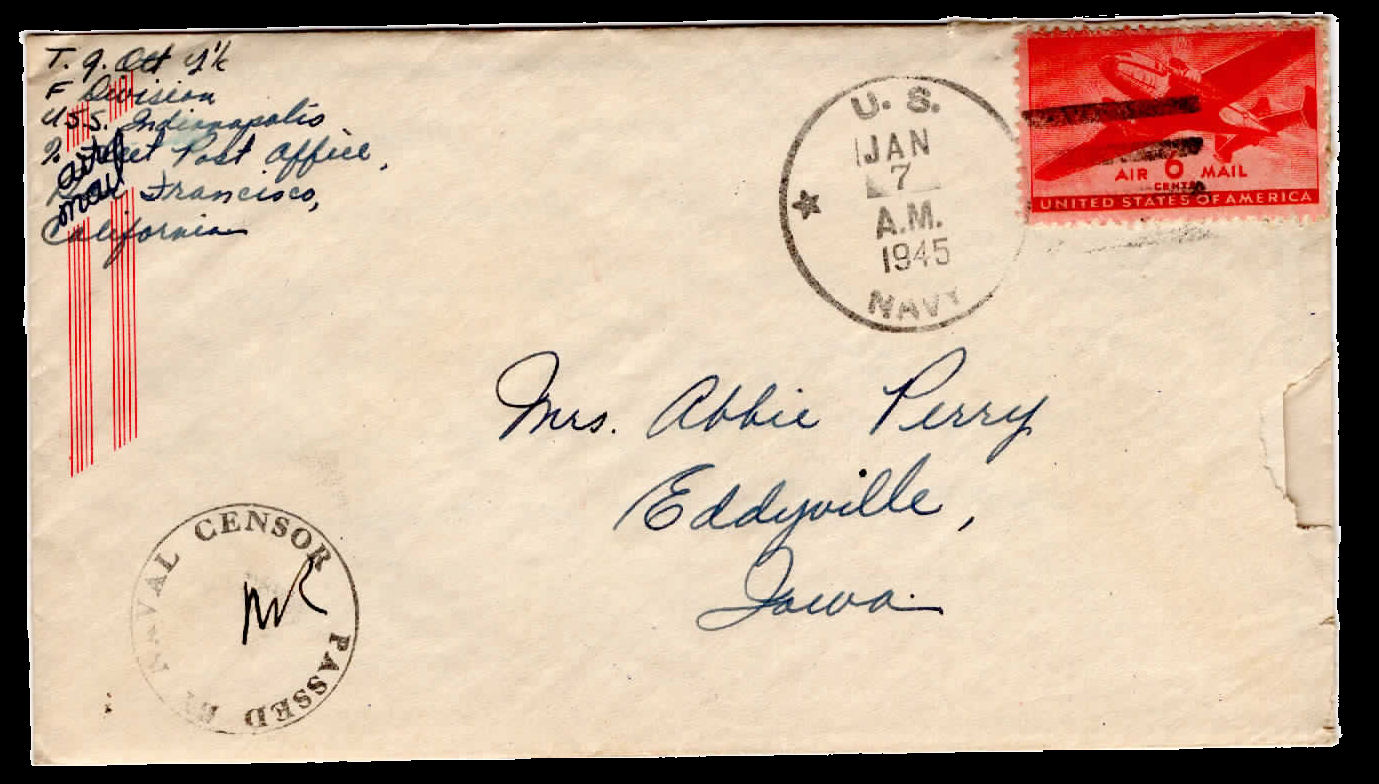 T. J. Ott Y 1/c
F Division
U.S.S. Indianapolis
Fleet Post Office,
San Francisco,
California
air
mail
U. S.
JAN
7
A.M.
1945
NAVY
AIR 6 MAIL
CENTS
UNITED STATES OF AMERICA
Mrs. Abbie Perry
Eddyville,
Iowa
PASSED BY NAVAL CENSOR